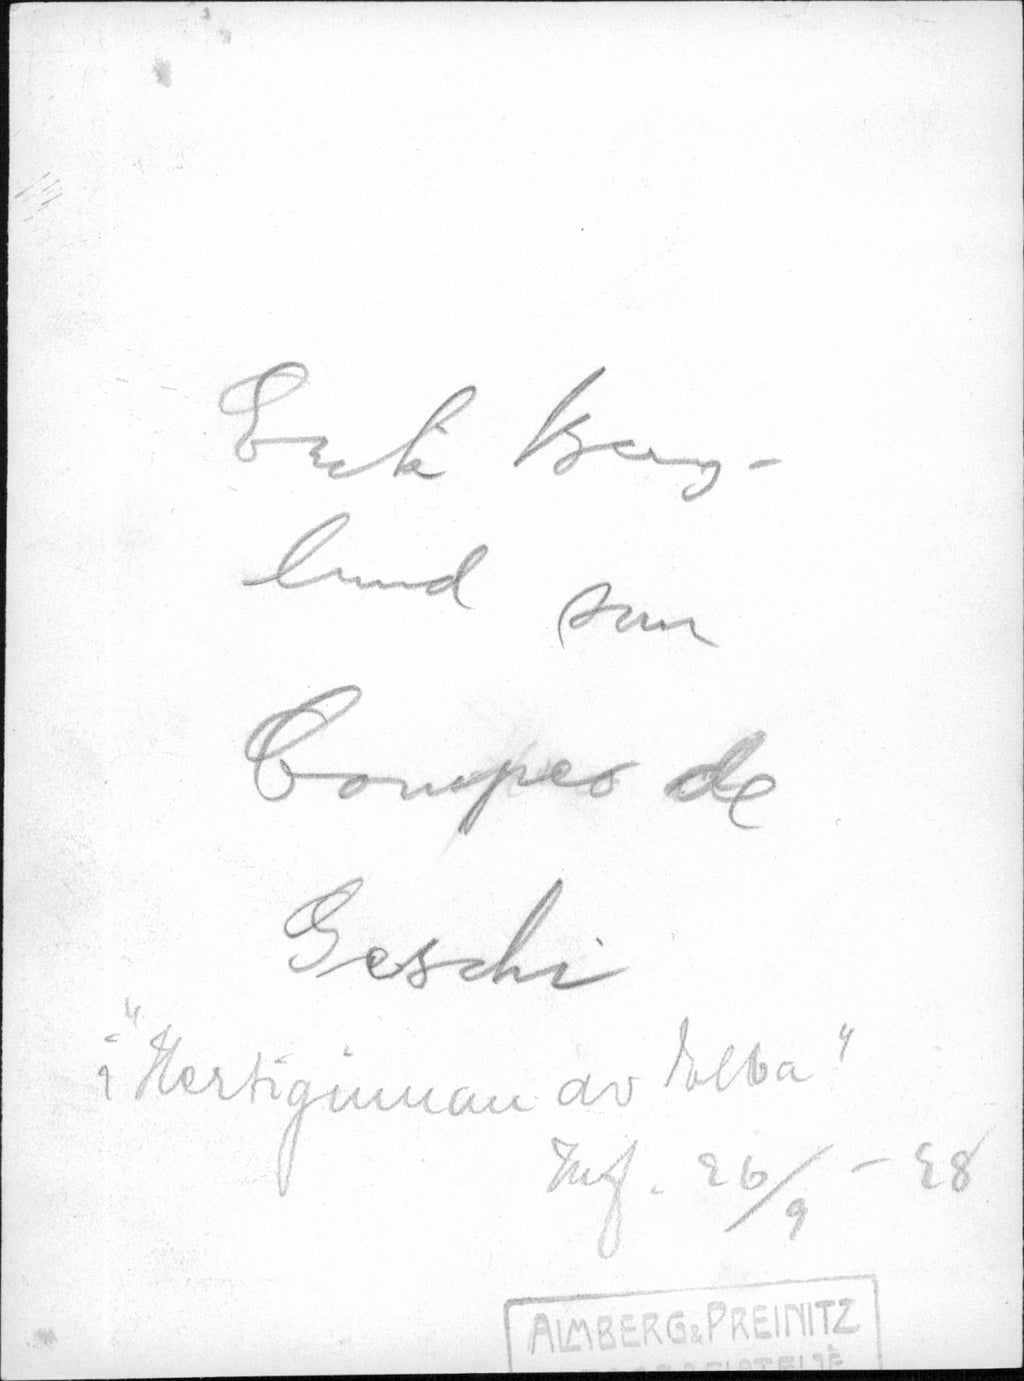 Erik Berg-
lund som
Compeo de
Geschi
i "Hertiginnan av Elba"
Inf. 26/9 - 28
ALMBERG & PREINITZ